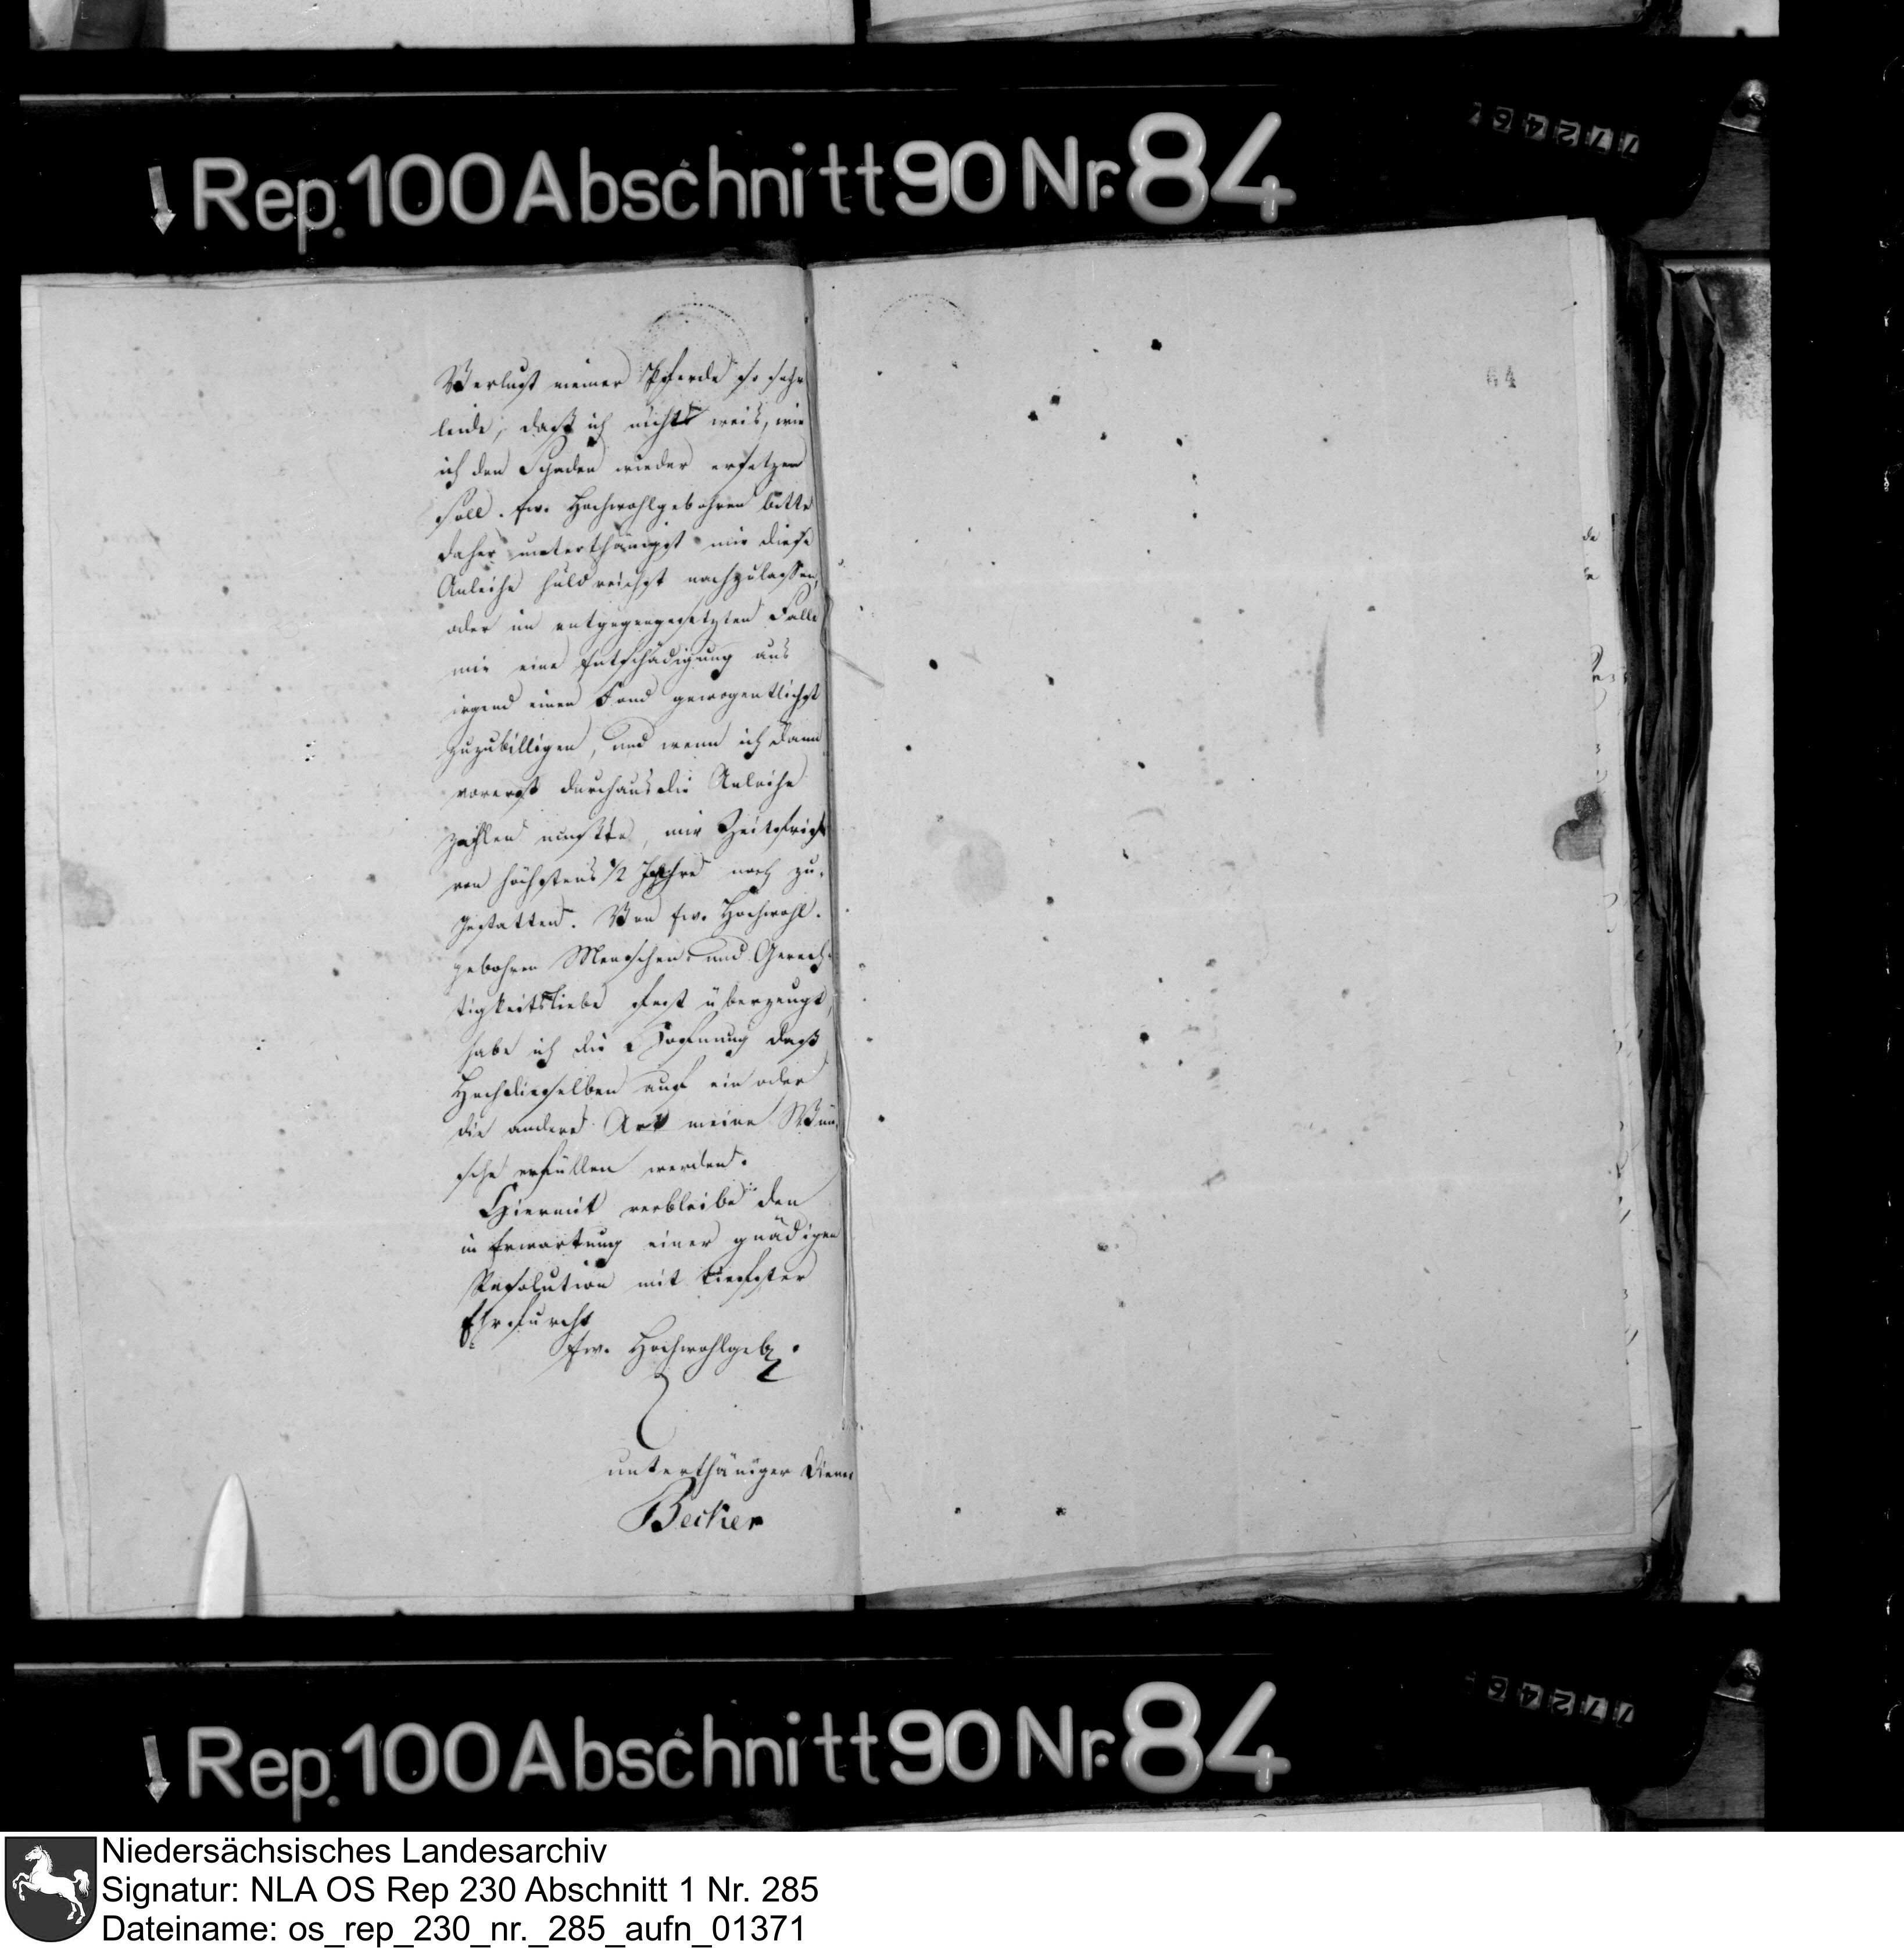 Rep. 100 Abschnitt 90 Nr. 84
77246
64
Verlust meiner Pferde so sehr
leide, daß ich nicht weis, wie
ich den Schaden wieder ersetzen
soll. Ew. Hochwohlgebohren bitte
daher unterthänigst mir diese
Anleihe huldreichst nachzulassen,
oder im entgegengesetzten Falle
mir eine Entschädigung aus
irgend einen Fond gewogentlichst
zuzubilligen, und wenn ich dann
vorerst durchaus die Anleihe
zahlen mußte, mir Zeitsfrist
von höchstens 1/2 Jahre noch zu
gestatten. Von Ew. Hochwohl-
gebohren Menschen- und Gerech-
tigkeitsliebe fest überzeugt,
habe ich die Hofnung daß
Hochdieselben auf ein oder
die andere Art meine Wün-
sche erfüllen werden.
Hiermit verbleibe den
in Erwartung einer gnädigen
Resolution mit tiefster
Ehrfurcht
Ew. Hochwohlgeb.
unterthäniger Diener
Becker
Rep. 100 Abschnitt 90 Nr. 84
77246
Niedersächsisches Landesarchiv
Signatur: NLA OS Rep 230 Abschnitt 1 Nr. 285
Dateiname: os_rep_230_nr._285_aufn_01371